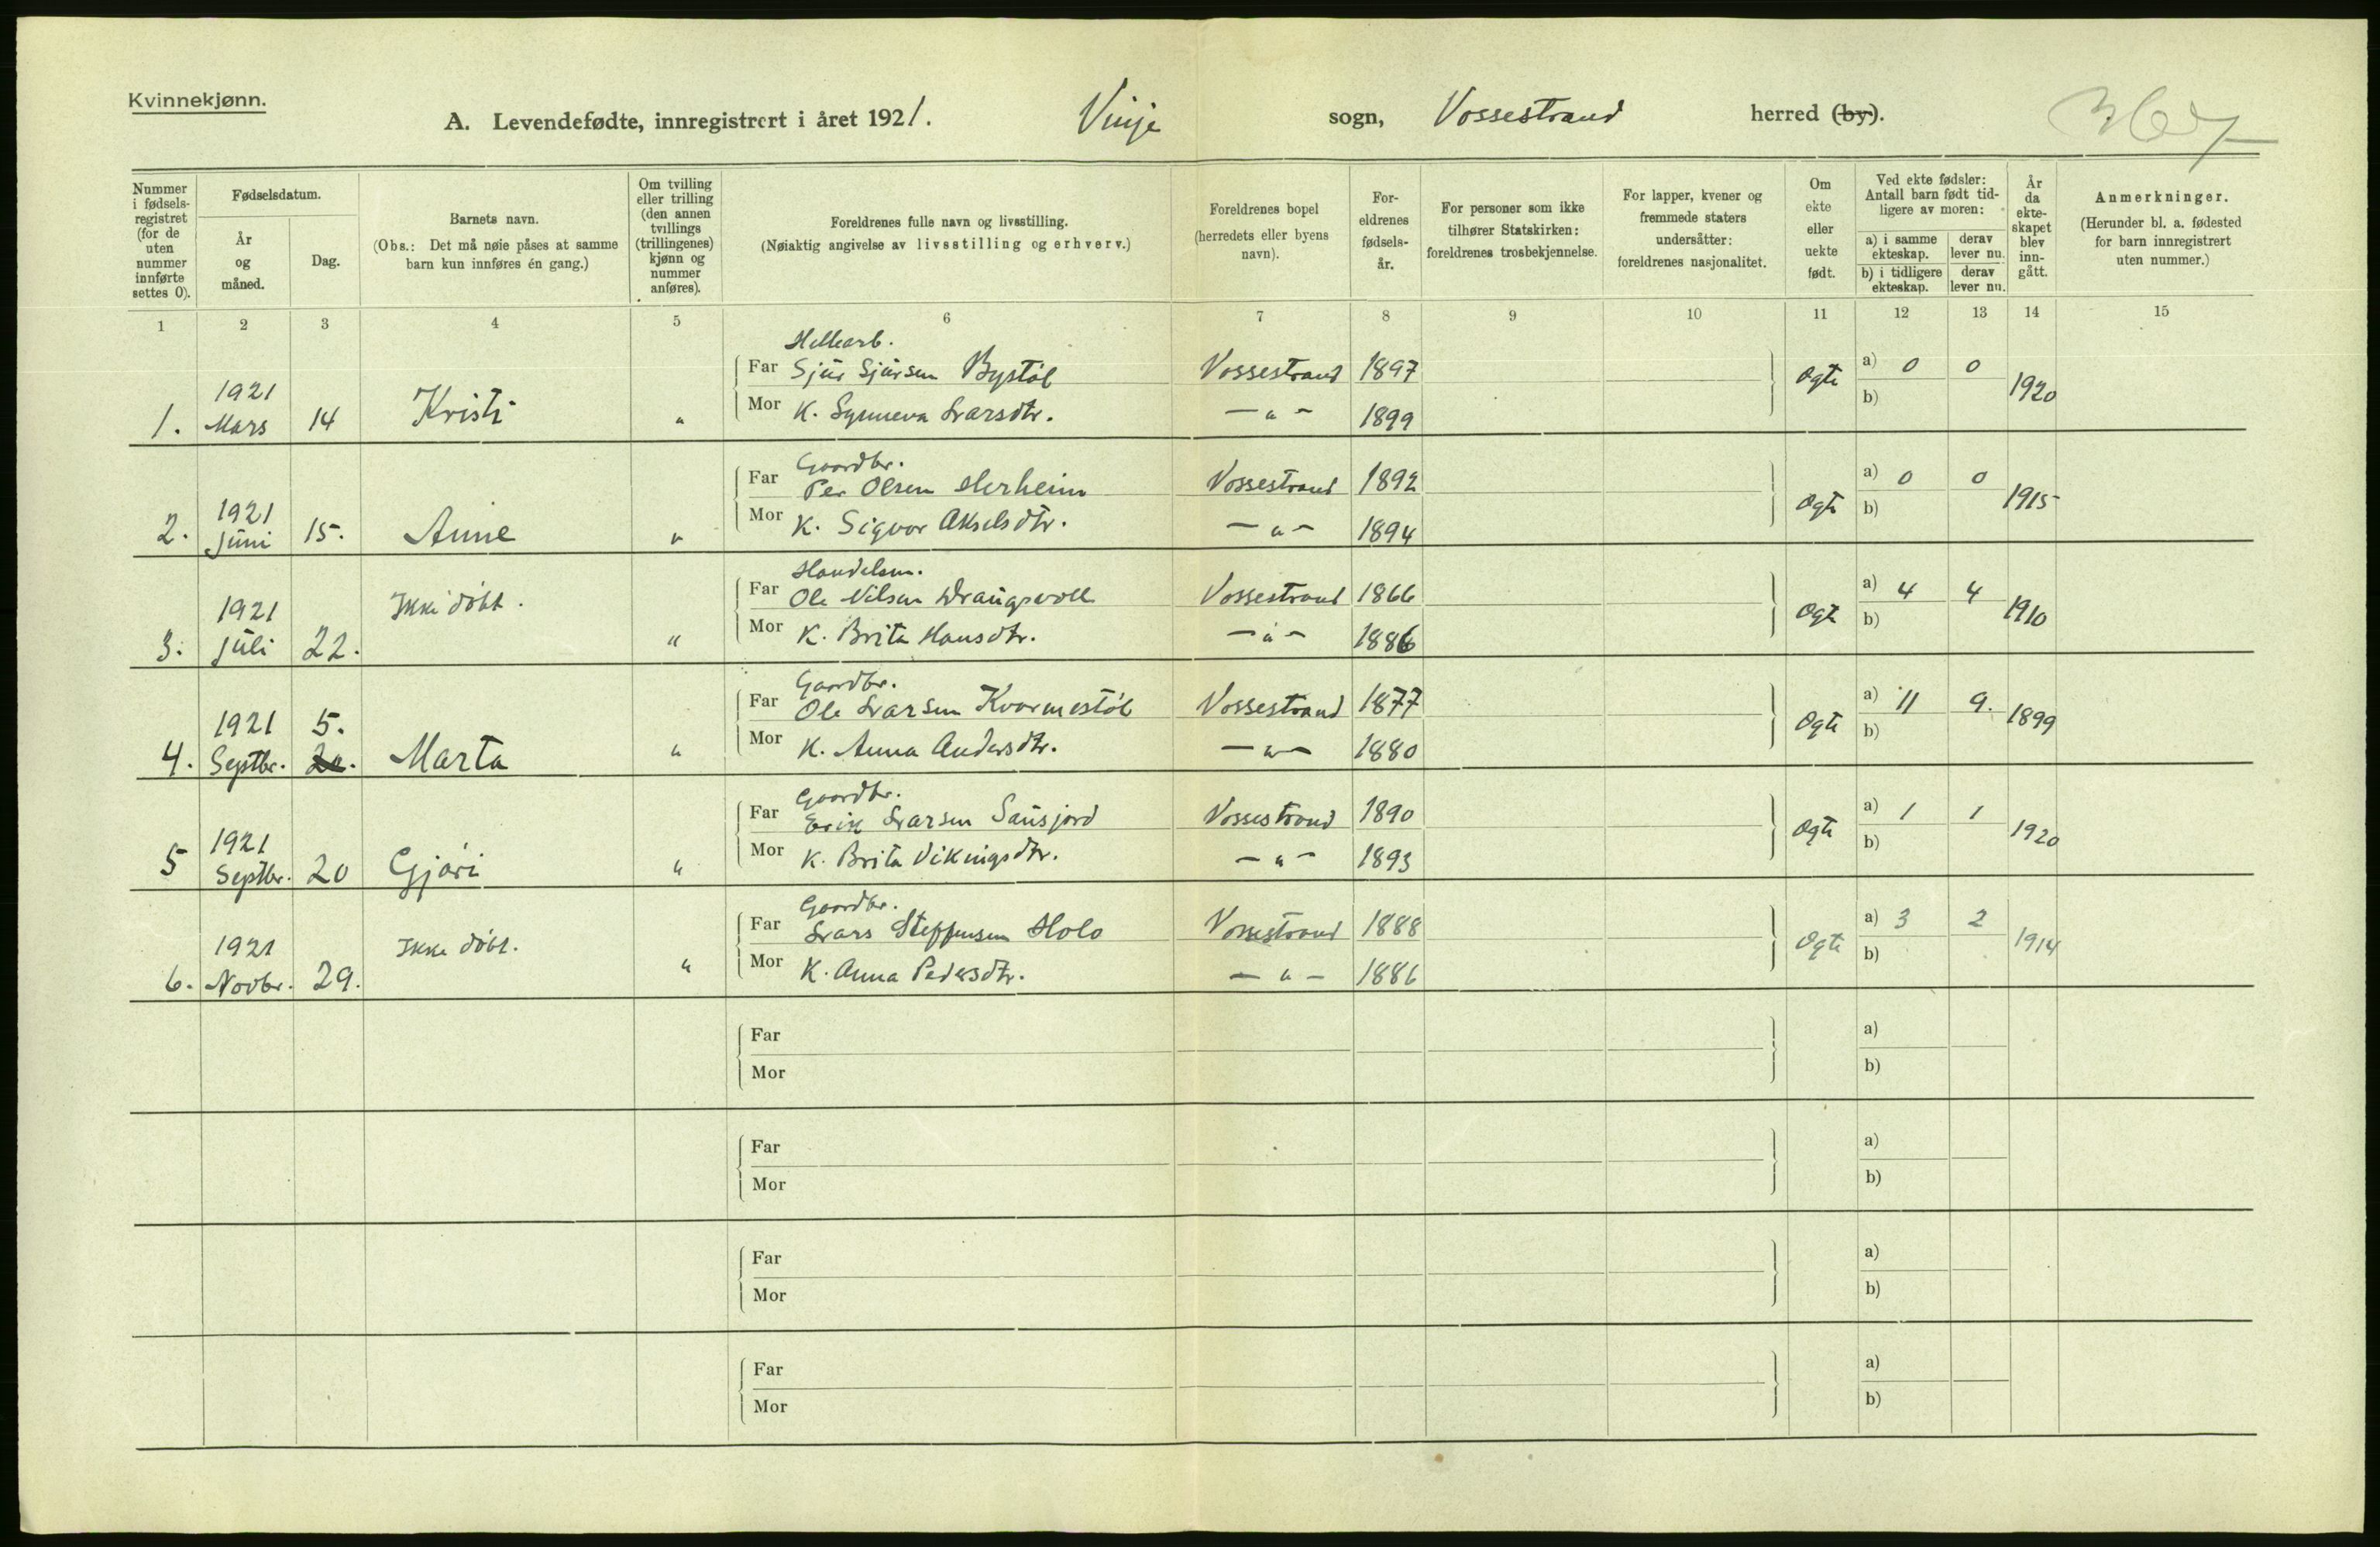 Kvinnekjønn.
A. Levendefødte, innregistrert i året 1921. Vinje sogn, Vossestrand herred (by).
Nummer i fødselsregistret (for de uten nummer innførte settes 0).
Fødselsdatum.
År og måned.
Dag.
Barnets navn.
(Obs.: Det må nøie påses at samme barn kun innføres én gang.)
Om tvilling eller trilling (den annen tvillings (trillingenes) kjønn og nummer anføres).
Foreldrenes fulle navn og livsstilling.
(Nøiaktig angivelse av livsstilling og erhverv.)
Foreldrenes bopel (herredets eller byens navn).
Foreldrenes fødselsår.
For personer som ikke tilhører Statskirken: foreldrenes trosbekjennelse.
For lapper, kvener og fremmede staters undersåtter: foreldrenes nasjonalitet.
Om ekte eller uekte født.
Ved ekte fødsler: Antall barn født tidligere av moren:
a) i samme ekteskap. derav lever nu.
b) i tidligere ekteskap. derav lever nu.
År da ekteskapet blev inngått.
Anmerkninger.
(Herunder bl. a. fødested for barn innregistrert uten nummer.)
1 2 3 4 5 6 7 8 9 10 11 12 13 14 15
Hellearb.
Far Sjur Sjursen Bystøl Vossestrand 1897 a) 0 0
1. 1921 Mars 14 Kristi " Ogte 1920
Mor K. Synneva Larsdtr. — " — 1899 b)
Gaardbr.
Far Per Olsen Herheim Vossestrand 1892 a) 0 0
2. 1921 Juni 15. Anne " Ogte 1915
Mor K. Sigvor Akselsdtr. — " — 1894 b)
Handelsm.
Far Ole Nilsen Draugsvoll Vossestrand 1866 a) 4 4
3. 1921 Juli 22. Ikke døbt. " Ogte 1910
Mor K. Brita Hansdtr. — " — 1886 b)
Gaardbr.
Far Ole Larsen Kvarmestøl Vossestrand 1877 a) 11 9.
4. 1921 Septbr. 5. 20. Marta " Ogte 1899
Mor K. Anna Andersdtr. — " — 1880 b)
Gaardbr.
Far Erik Larsen Sausjord Vossestrand 1890 a) 1 1
5 1921 Septbr. 20 Gjøri " Ogte 1920
Mor K. Brita Vikingsdtr. — " — 1893 b)
Gaardbr.
Far Lars Steffensen Holo Vossestrand 1888 a) 3 2
6. 1921 Novbr. 29. Ikke døbt. " Ogte 1914
Mor K. Anna Pedersdtr. — " — 1886 b)
Far a)
Mor b)
Far a)
Mor b)
Far a)
Mor b)
Far a)
Mor b)